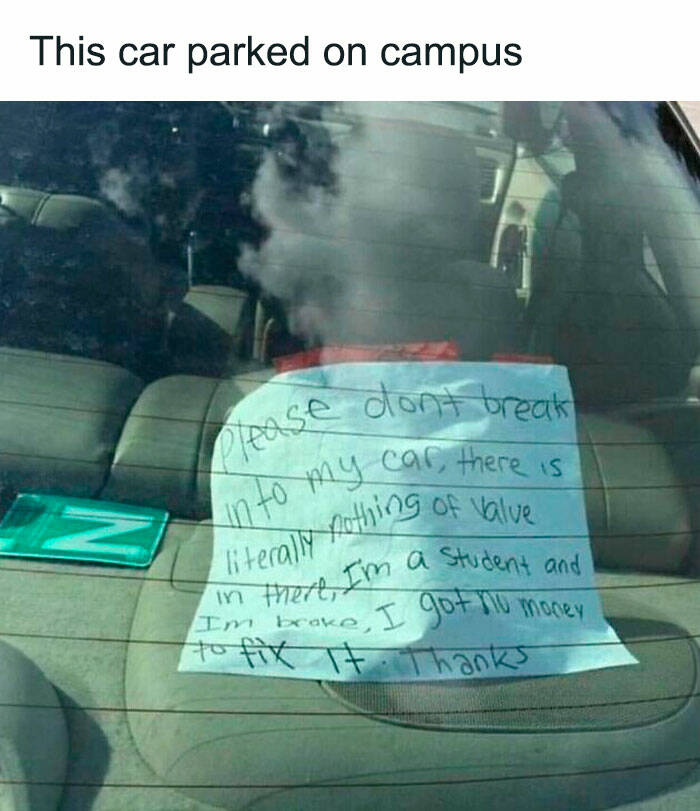 This car parked on campus
Please dont break
into my car, there is
literally nothing of value
in there, I'm a student and
Im broke, I got no money
to fix it. Thanks
N